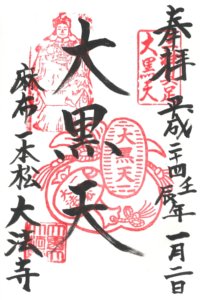 奉拝
平成二十四壬辰年
一月二日
大黒天
大黒天
大黒天
麻布一本松
大法寺